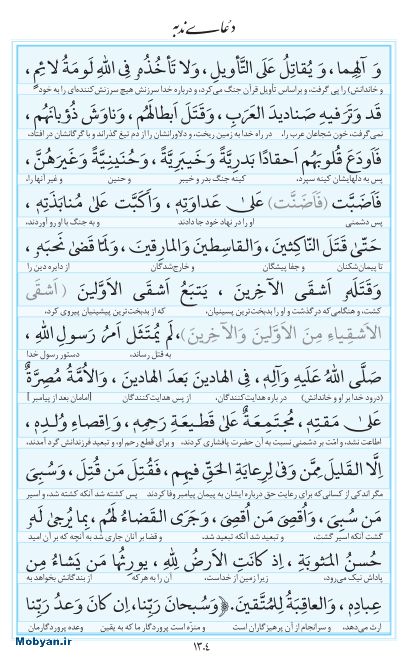 دعای ندبه
وَ آلِهِما، وَ يُقاتِلُ عَلَی التَّأويلِ، وَلا تَأخُذُهُ فِی اللهِ لَومَةُ لائِمٍ،
و خاندانش) را پی گرفت، و براساس تأویل قرآن جنگ می‌کرد، و درباره خدا سرزنش هیچ سرزنش کننده‌ای را به خود)
قَد وَتَرَ فيهِ صَناديدَ العَرَبِ، وَقَتَلَ اَبطالَهُم، وَناوَشَ ذُؤبانَهُم،
نمی‌گرفت، خون شجاعان عرب را، در راه خدا به زمین ریخت، و دلاورانشان را از دم تیغ گذراند و با گرگانشان در افتاد،
فَاَودَعَ قُلوبَهُم اَحقادًا بَدرِيَّةً وَخَيبَرِيَّةً، وَحُنَينِيَّةً وَغَيرَهُنَّ،
پس به دلهایشان کینه سپرد، کینه جنگ بدر و خیبر و حنین و غیر آنها را،
فَاَضَبَّت (فَاَضَنَّت) عَلیٰ عَداوَتِهِ، وَاَکَبَّت عَلیٰ مُنابَذَتِهِ،
پس دشمنی او را در نهاد خود جا دادند و به جنگ با او رو آوردند،
حَتّیٰ قَتَلَ النّاکِثينَ، وَالقاسِطينَ وَالمارِقينَ، وَلَمّا قَضیٰ نَحبَهُ،
تا پیمان‌شکنان و جفا پیشگان و خارج‌شدگان از دایره دین را
وَقَتَلَهُ اَشقَی الآخِرينَ، يَتبَعُ اَشقَی الاَوَّلينَ (اَشقَی
کشت، و هنگامی که درگذشت و او را بدبخت‌ترین پسینیان، که از بدبخت‌ترین پیشینیان پیروی کرد،
الاَشقِياءِ مِنَ الاَوَّلينَ وَالآخِرينَ)، لَم يُمتَثَل اَمرُ رَسولِ اللهِ،
به قتل رساند، دستور رسول خدا
صَلَّی اللهُ عَلَيهِ وَآلِهِ، فِی الهادينَ بَعدَ الهادينَ، وَالاُمَّةُ مُصِرَّةٌ
(درود خدا بر او و خاندانش) درباره هدایت‌کنندگان، از پس هدایت‌کنندگان [امامان بعد از پیامبر]
عَلیٰ مَقتِهِ، مُجتَمِعَةٌ عَلیٰ قَطيعَةِ رَحِمِهِ، وَاِقصاءِ وُلدِهِ،
اطاعت نشد، و امّت بر دشمنی نسبت به آن حضرت پافشاری کردند، و برای قطع رحم او، و تبعید فرزندانش گرد آمدند،
اِلَّا القَليلَ مِمَّن وَفیٰ لِرِعايَةِ الحَقِّ فيهِم، فَقُتِلَ مَن قُتِلَ، وَسُبِیَ
مگر اندکی از کسانی که برای رعایت حق درباره ایشان به پیمان پیامبر وفا کردند پس کشته شد آنکه کشته شد، و اسیر
مَن سُبِیَ، وَاُقصِیَ مَن اُقصِیَ، وَجَرَی القَضاءُ لَهُم، بِما يُرجیٰ لَهُ
گشت آنکه اسیر گشت، و تبعید شد آنکه تبعید شد، و قضا بر آنان جاری شد به آنچه که بر آن امید
حُسنُ المَثوبَةِ، اِذ کانَتِ الاَرضُ لِلّٰهِ، يورِثُها مَن يَشاءُ مِن
پاداش نیک می‌رود، زیرا زمین از خداست، آن را به هر که از بندگانش بخواهد به
عِبادِهِ، وَالعاقِبَةُ لِلمُتَّقينَ. وَسُبحانَ رَبِّنا، اِن کانَ وَعدُ رَبِّنا
ارث می‌دهد، و سرانجام از آن پرهیزگاران است و منزّه است پروردگار ما که به یقین وعده پروردگارمان
Mobyan.ir
۱۳۰۴